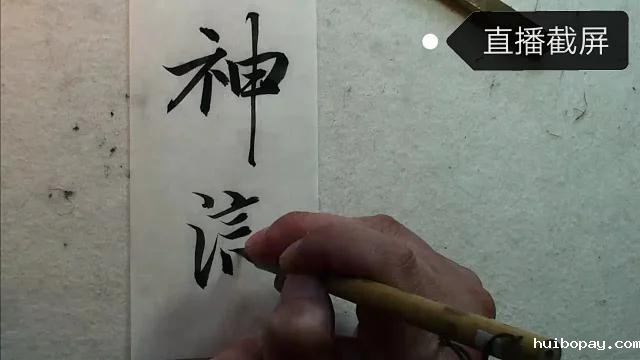 直播截屏
神
huibopay.com